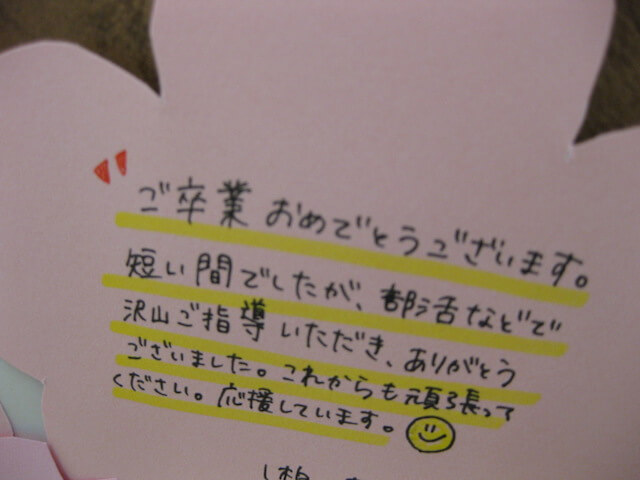 ご卒業おめでとうございます。
短い間でしたが、部活などで
沢山ご指導いただき、ありがとう
ございました。これからも頑張って
ください。応援しています。